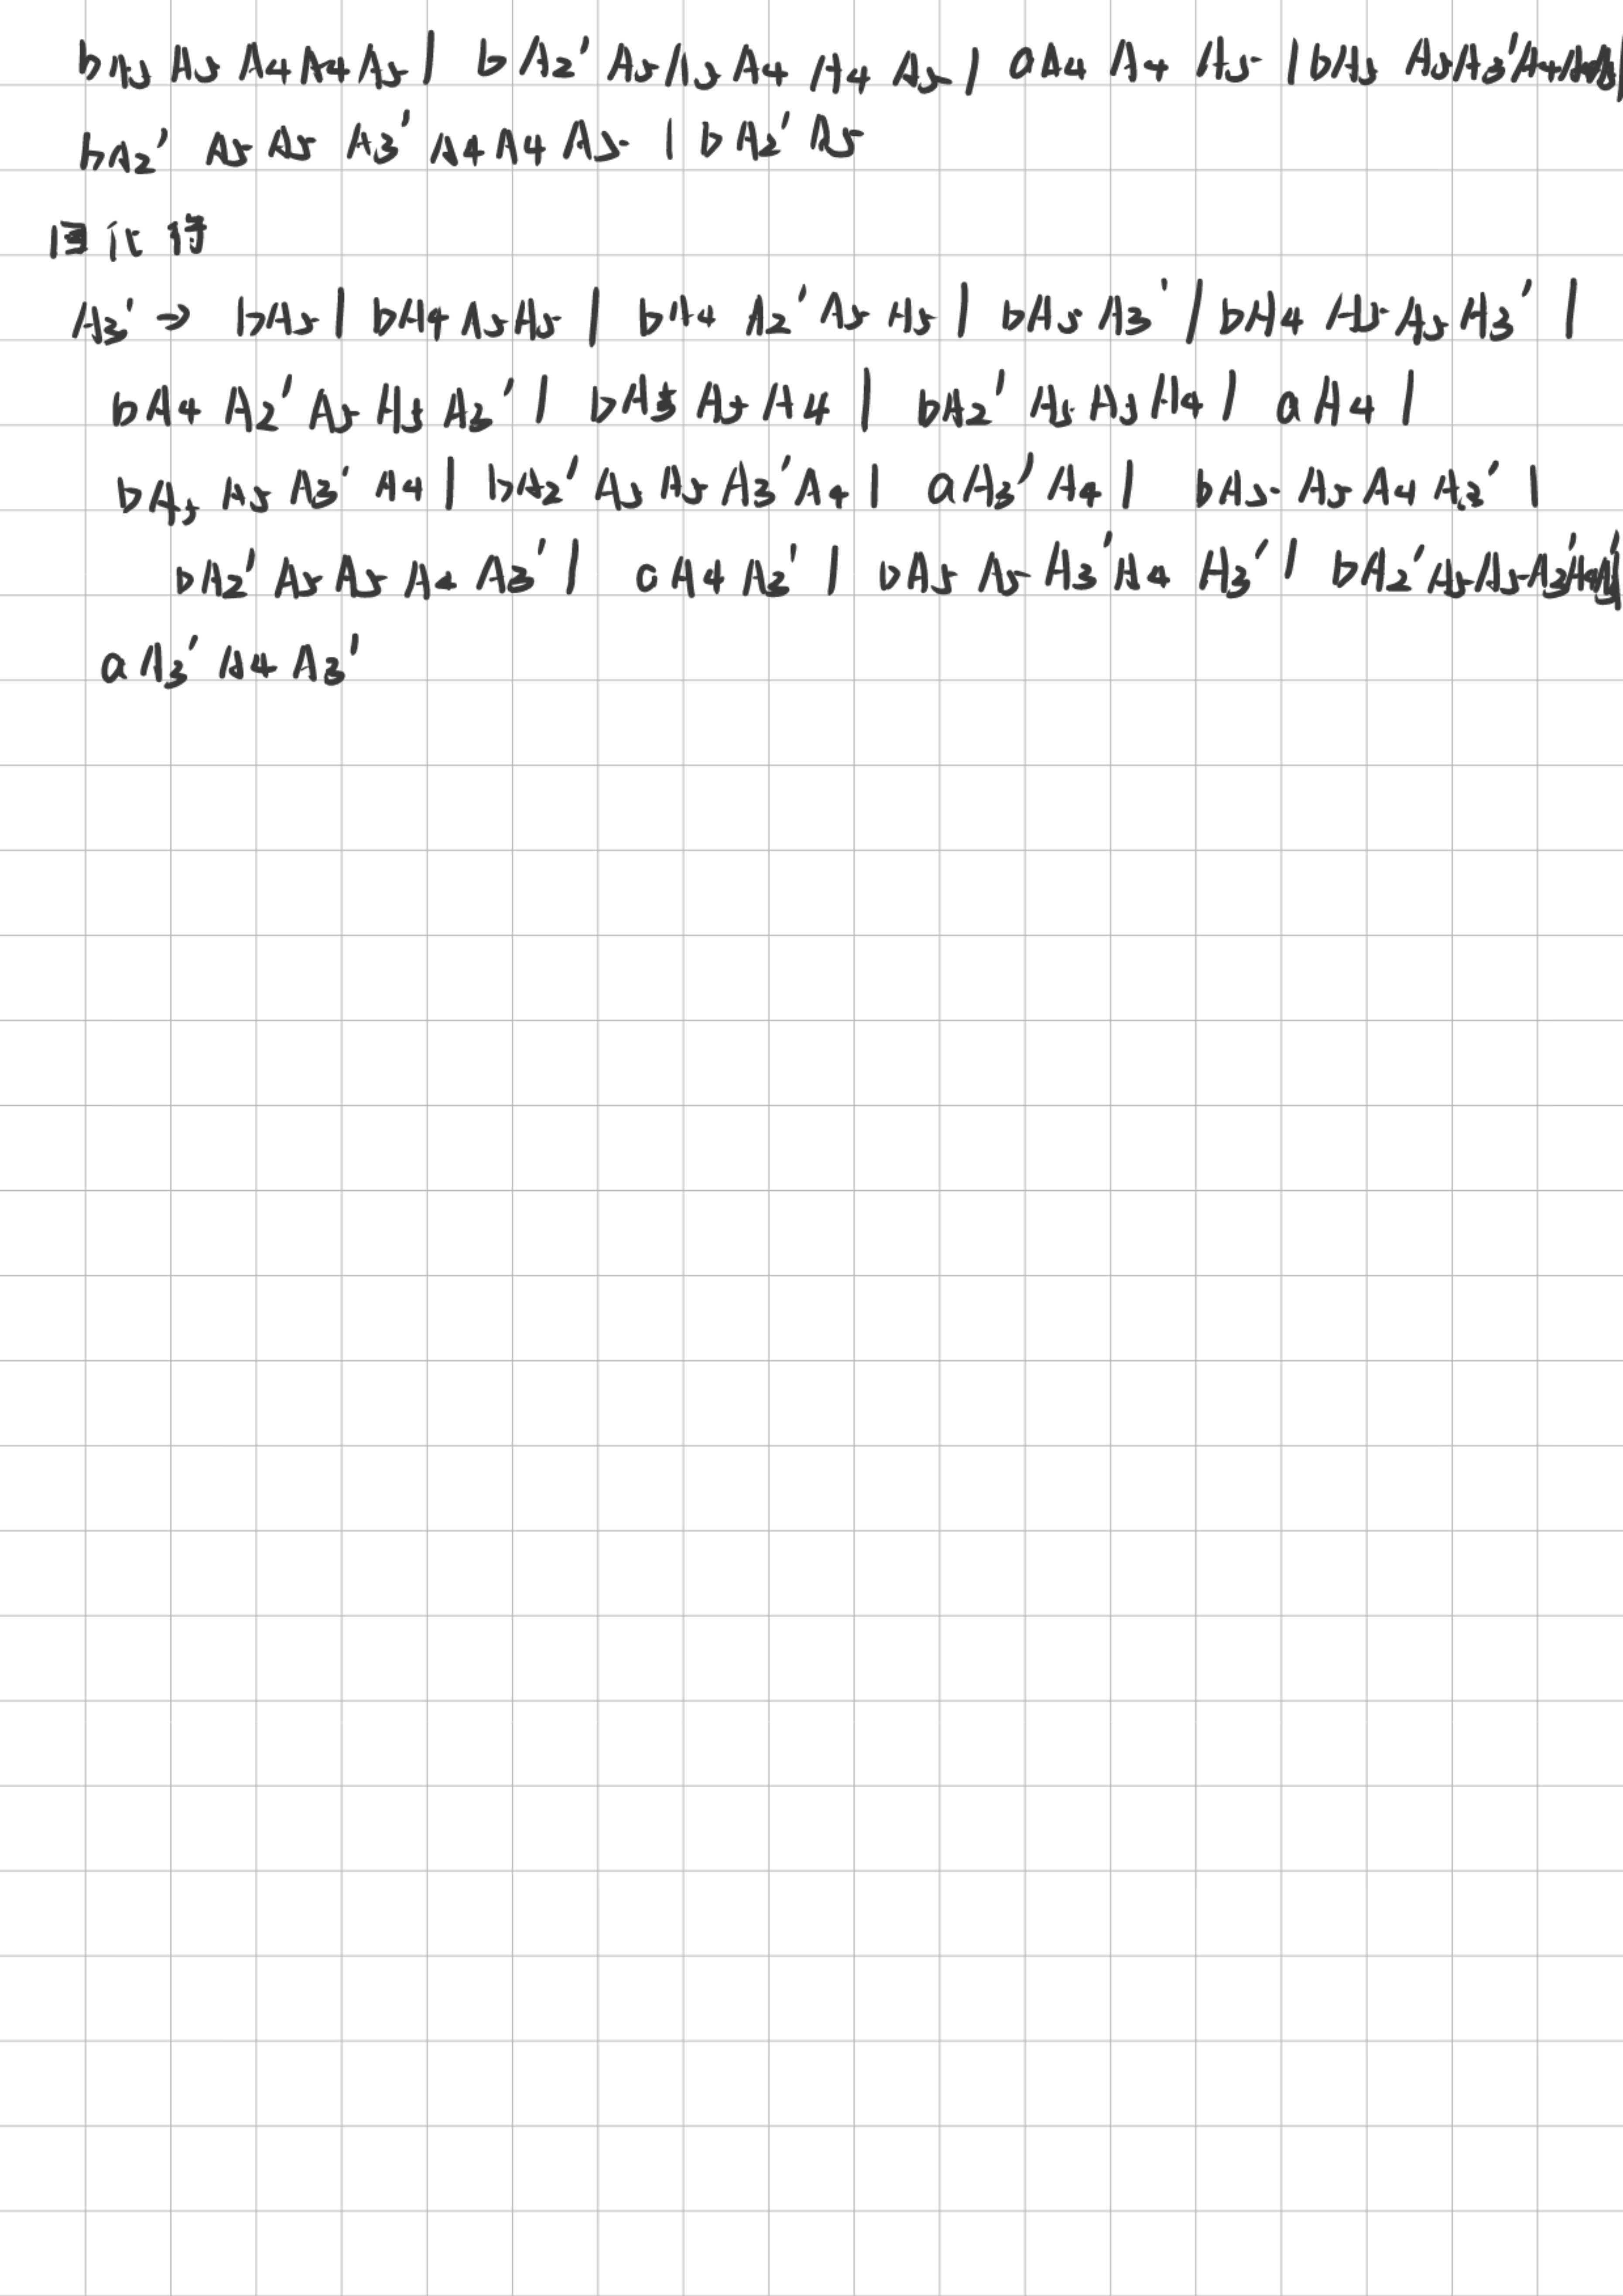 bA5 A5 A4 A4 A5 | bA2' A5 A5 A4 A4 A5 | aA4 A4 A5 | bA5 A5 A3' A4
bA2' A5 A5 A3' A4 A4 A5 | bA2' A5
回代得
A3' → bA5 | bA4 A5 A5 | bA4 A2' A5 A5 | bA5 A3' | bA4 A5 A5 A3' |
bA4 A2' A5 A5 A3' | bA5 A5 A4 | bA2' A5 A5 A4 | aA4 |
bA5 A5 A3' A4 | bA2' A5 A5 A3' A4 | aA3' A4 | bA5 A5 A4 A3' |
bA2' A5 A5 A4 A3' | aA4 A3' | bA5 A5 A3' A4 A3' | bA2' A5 A5 A3'
aA3' A4 A3'